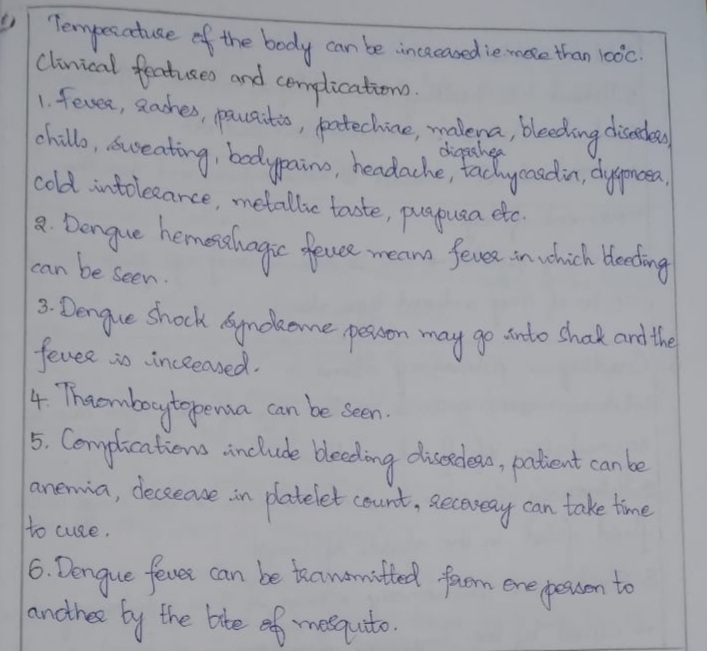 Temperature of the body can be increased ie more than 100°C.
Clinical features and complications.
1. Fever, rashes, pruritis, patechiae, malena, bleeding disorders,
diarrhea
chills, sweating, bodypains, headache, tachycardia, dyspnoea,
cold intolerance, metallic taste, purpura etc.
2. Dengue hemorrhagic fever means fever in which bleeding
can be seen.
3. Dengue shock syndrome person may go into shak and the
fever is increased.
4. Thrombocytopenia can be seen.
5. Complications include bleeding disorders, patient can be
anemia, decrease in platelet count, recovery can take time
to cure.
6. Dengue fever can be transmitted from one person to
another by the bite of mosquito.